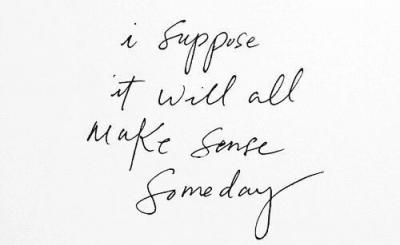 i suppose
it will all
make sense
someday